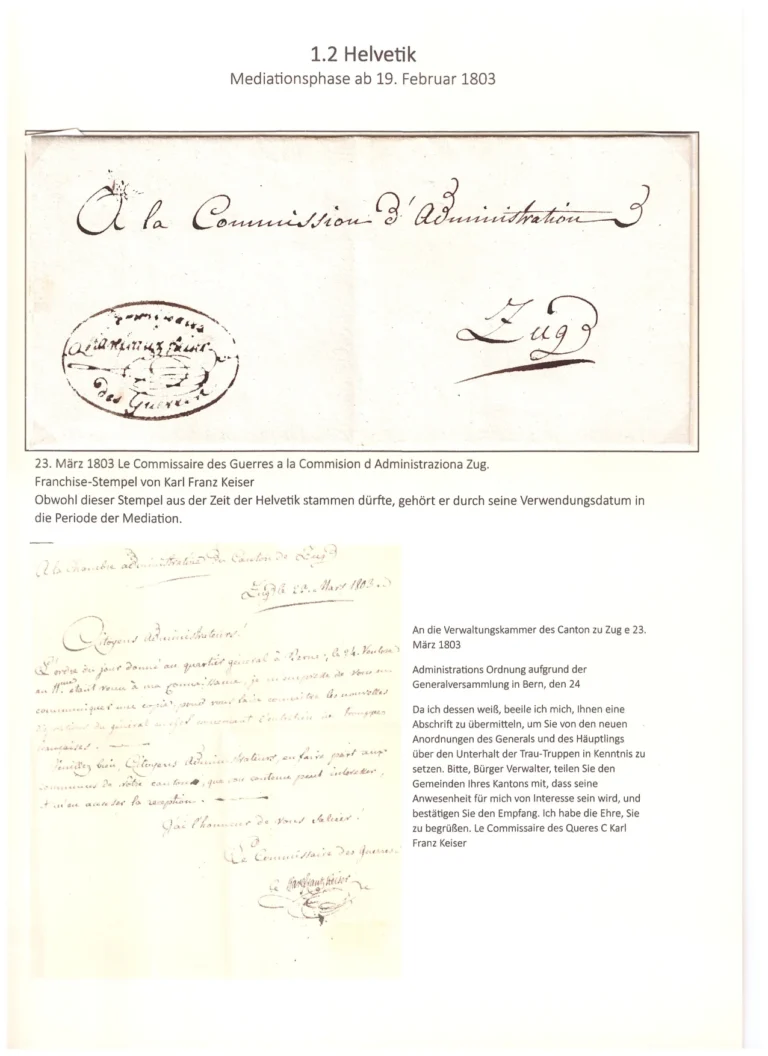 1.2 Helvetik
Mediationsphase ab 19. Februar 1803
A la Commission d'Administration
Zug
des Guerres
23. März 1803 Le Commissaire des Guerres a la Commision d Administraziona Zug.
Franchise-Stempel von Karl Franz Keiser
Obwohl dieser Stempel aus der Zeit der Helvetik stammen dürfte, gehört er durch seine Verwendungsdatum in
die Periode der Mediation.
A la Chambre administrative du Canton de Zug
Zug le 23. Mars 1803.
Citoyens Administrateurs!
L'ordre du jour donné au quartier général à Berne, le 24
au étant venu à ma connaissance, je m'empresse de vous en
communiquer une copie, pour vous faire connaître les nouvelles
dispositions du général en chef concernant l'entretien de trouppes
françaises.
Veuillez bien, Citoyens Administrateurs, en faire part aux
communes de votre canton, que son contenu peut intéresser,
et m'en accuser la réception.
J'ai l'honneur de vous saluer!
Le Commissaire des Guerres.
An die Verwaltungskammer des Canton zu Zug e 23.
März 1803
Administrations Ordnung aufgrund der
Generalversammlung in Bern, den 24
Da ich dessen weiß, beeile ich mich, Ihnen eine
Abschrift zu übermitteln, um Sie von den neuen
Anordnungen des Generals und des Häuptlings
über den Unterhalt der Trau-Truppen in Kenntnis zu
setzen. Bitte, Bürger Verwalter, teilen Sie den
Gemeinden Ihres Kantons mit, dass seine
Anwesenheit für mich von Interesse sein wird, und
bestätigen Sie den Empfang. Ich habe die Ehre, Sie
zu begrüßen. Le Commissaire des Queres C Karl
Franz Keiser